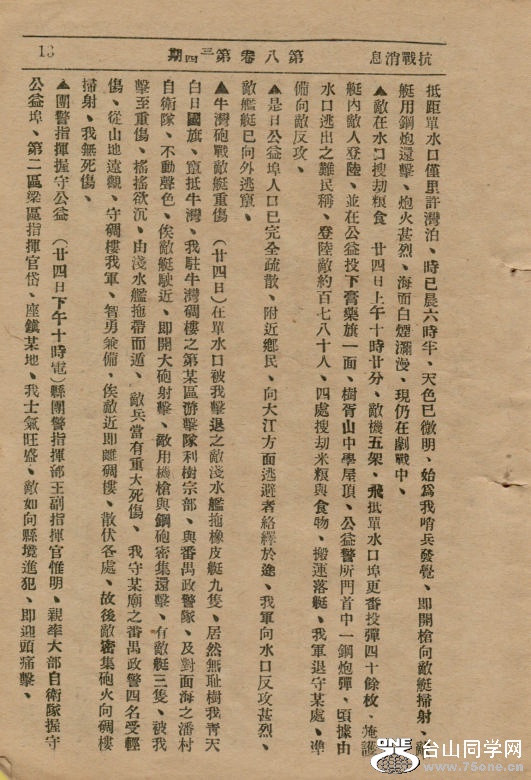 抗戰消息
第八卷第三四期
13
抵距單水口僅里許灣泊、時已晨六時半、天色已微明、始爲我哨兵發覺、即開槍向敵艇掃射、敵
艇用鋼炮還擊、炮火甚烈、海面白煙瀰漫、現仍在劇戰中、
▲敵在水口搜劫粮食 廿四日上午十時廿分、敵機五架、飛抵單水口埠更番投彈四十餘枚、掩護
艇內敵人登陸、並在公益投下膏藥旗一面、樹胥山中學屋頂、公益警所門首中一鋼炮彈、頃據由
水口逃出之難民稱、登陸敵約百七八十人、四處搜劫米粮與食物、搬運落艇、我軍退守某處、準
備向敵反攻、
▲是日公益埠人口已完全疏散、附近鄉民、向大江方面逃避者絡繹於途、我軍向水口反攻甚烈、
敵艦艇已向外逃竄、
▲牛灣砲戰敵艇重傷 (廿四日)在單水口被我擊退之敵淺水艦拖橡皮艇九隻、居然無耻樹我靑天
白日國旗、竄抵牛灣、我駐牛灣碉樓之第某區游擊隊利樹宗部、與番禺政警隊、及對面海之潘村
自衛隊、不動聲色、俟敵艇駛近、即開大砲射擊、敵用機槍與鋼砲密集還擊、有敵艇三隻、被我
擊至重傷、搖搖欲沉、由淺水艦拖帶而遁、敵兵當有重大死傷、我守某廟之番禺政警四名受輕
傷、從山地遠觀、守碉樓我軍、智勇兼備、俟敵近即離碉樓、散伏各處、故後敵密集砲火向碉樓
掃射、我無死傷、
▲團警指揮握守公益 (廿四日下午十時電)縣團警指揮部王副指揮官惟明、親率大部自衛隊握守
公益埠、第二區梁區指揮官岱、座鎮某地、我士氣旺盛、敵如向縣境進犯、即迎頭痛擊、
ONE
台山同学网
www.75one.cn